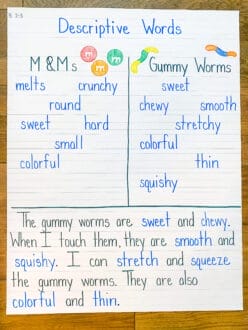 Descriptive Words
M & Ms
Gummy Worms
melts crunchy
round
sweet hard
small
colorful
sweet
chewy smooth
stretchy
colorful
thin
squishy
The gummy worms are sweet and chewy.
When I touch them, they are smooth and
squishy. I can stretch and squeeze
the gummy worms. They are also
colorful and thin.